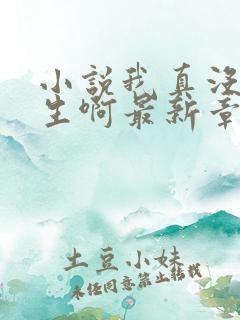 小説我真没
生啊最新章
土豆小妹
未经同意禁止转载